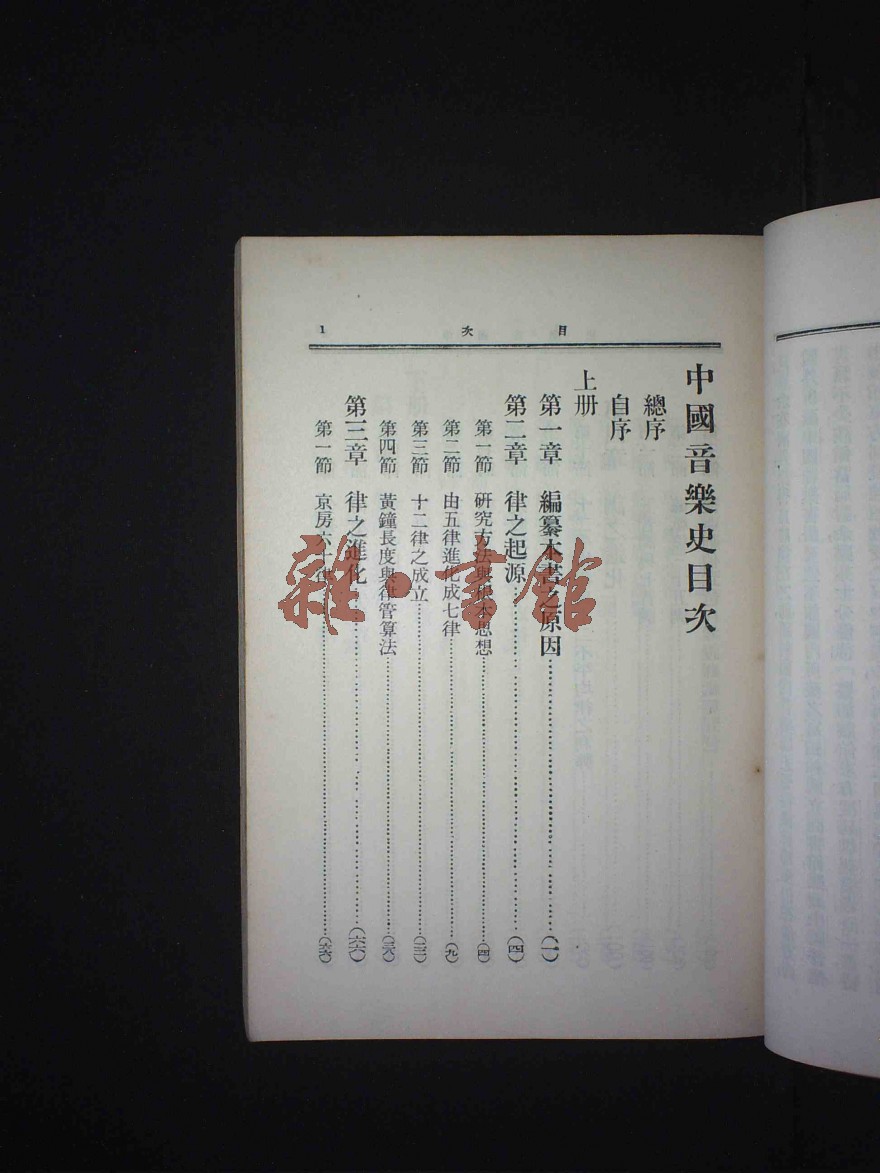 目次
1
中國音樂史目次
總序
自序
上册
第一章 編纂本書之原因……(一)
第二章 律之起源……(四)
第一節 研究方法與根本思想……(四)
第二節 由五律進化成七律……(九)
第三節 十二律之成立……(二三)
第四節 黃鐘長度與律管算法……(三八)
第三章 律之進化……(六六)
第一節 京房六十律……(六六)
雜·書館